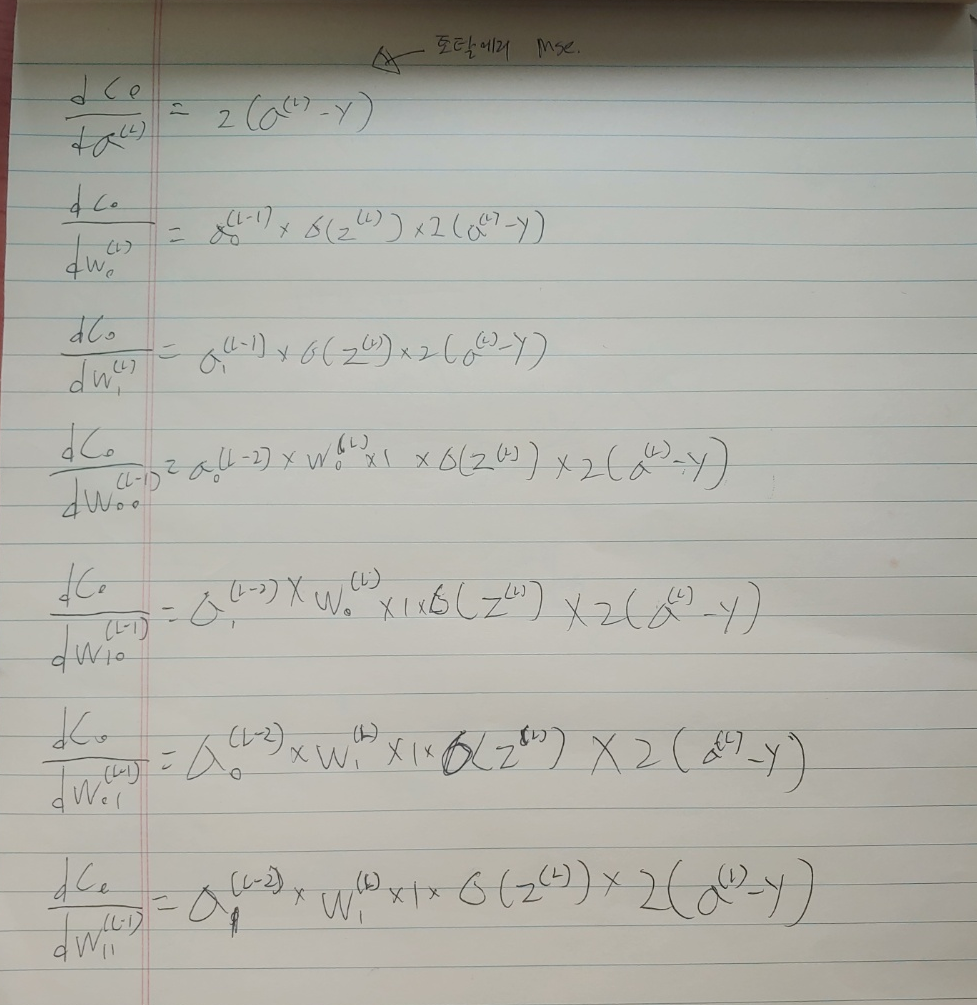 토탈에러 mse.
dC₀/da^(L) = 2(a^(L) - y)
dC₀/dw₀^(L) = a₀^(L-1) × σ(z^(L)) × 2(a^(L) - y)
dC₀/dw₁^(L) = a₁^(L-1) × σ(z^(L)) × 2(a^(L) - y)
dC₀/dw₀₀^(L-1) = a₀^(L-2) × w₀^(L) × 1 × σ(z^(L)) × 2(a^(L) - y)
dC₀/dw₁₀^(L-1) = a₁^(L-2) × w₀^(L) × 1 × σ(z^(L)) × 2(a^(L) - y)
dC₀/dw₀₁^(L-1) = a₀^(L-2) × w₁^(L) × 1 × σ(z^(L)) × 2(a^(L) - y)
dC₀/dw₁₁^(L-1) = a₁^(L-2) × w₁^(L) × 1 × σ(z^(L)) × 2(a^(L) - y)